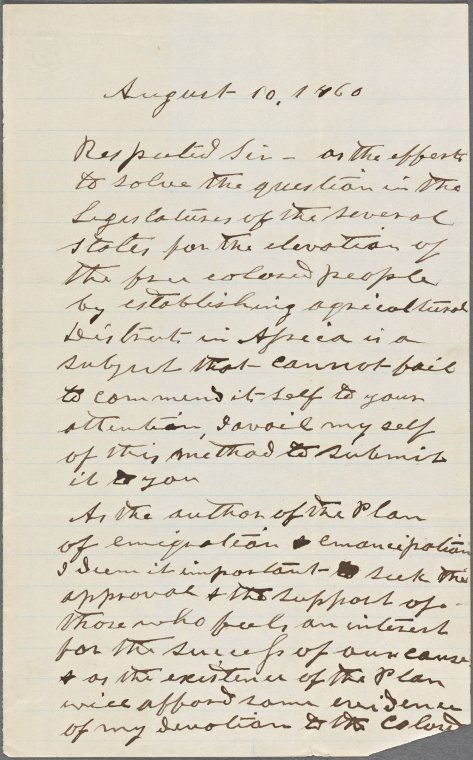 August 10, 1860
Respected Sir - as the efforts
to solve the question in the
Legislatures of the several
states for the elevation of
the free colored people
by establishing agricultural
Districts in Africa is a
subject that cannot fail
to commend it self to your
attention, I avail my self
of this method to submit
it to you
As the author of the Plan
of emigration & emancipation
I deem it important to seek the
approval & the support of
those who feels an interest
for the success of our cause
& as the existence of the Plan
will afford some evidence
of my devotion to the Colord